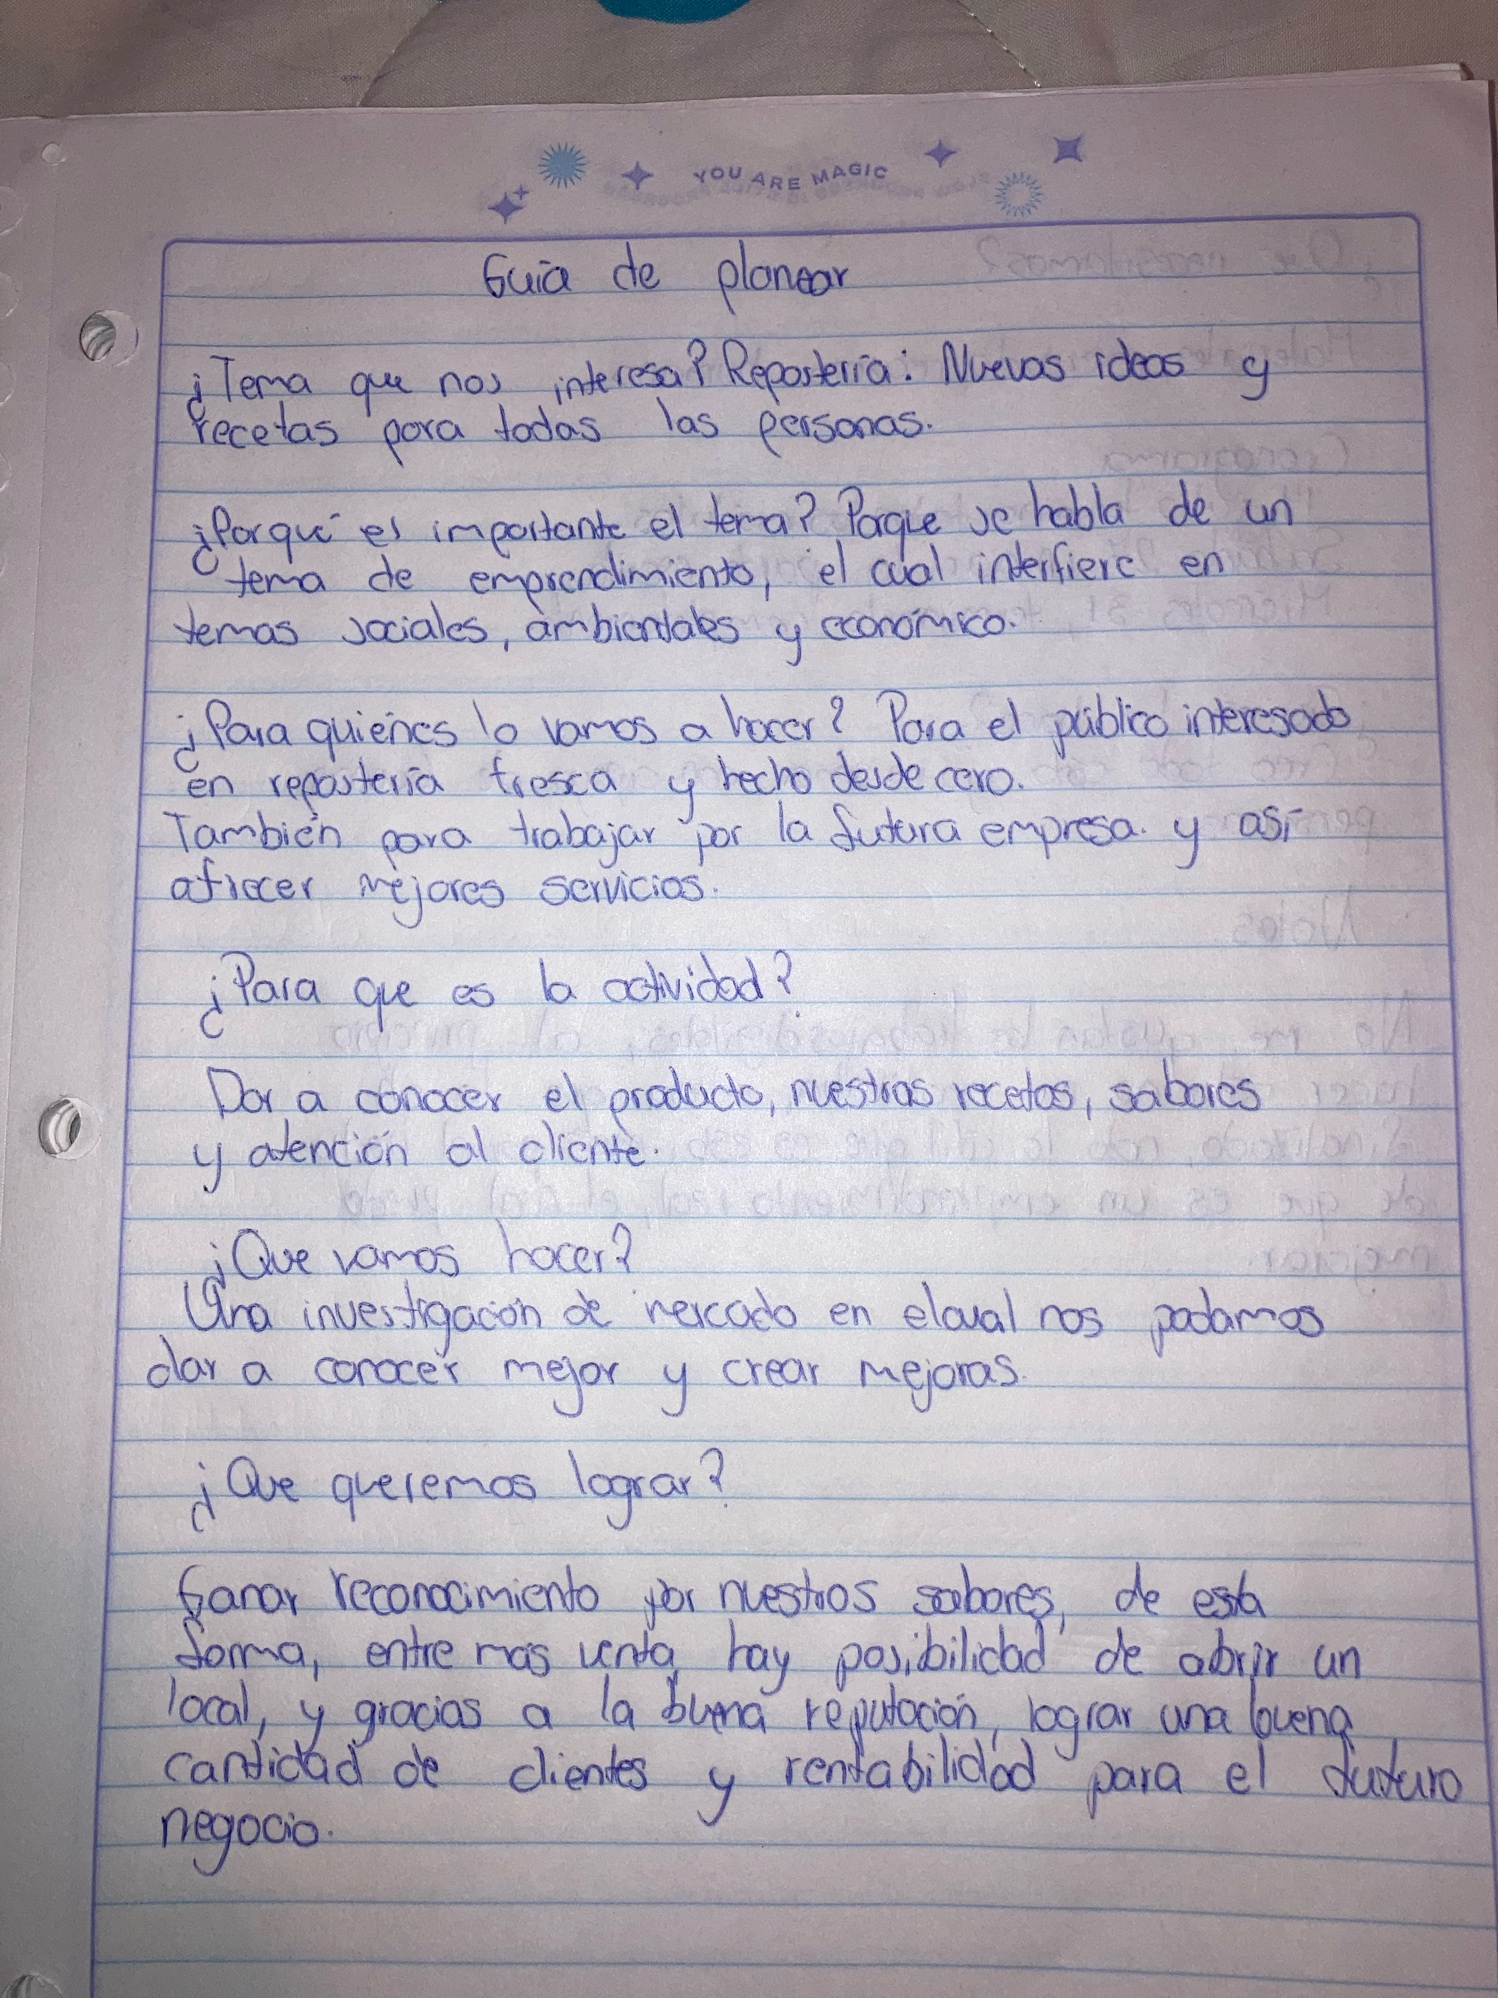 YOU ARE MAGIC
Guía de planear
¿Tema que nos interesa? Repostería: Nuevas ideas y
recetas para todas las personas.
¿Porqué es importante el tema? Porque se habla de un
tema de emprendimiento, el cual interfiere en
temas sociales, ambientales y económico.
¿Para quiénes lo vamos a hacer? Para el público interesado
en repostería fresca y hecho desde cero.
También para trabajar por la futura empresa. y así
ofrecer mejores servicios.
¿Para que es la actividad?
Dar a conocer el producto, nuestras recetas, sabores
y atención al cliente.
¿Que vamos hacer?
Una investigación de mercado en elcual nos podamos
dar a conocer mejor y crear mejoras.
¿Que queremos lograr?
Ganar reconocimiento por nuestros sabores, de esta
forma, entre mas venta hay posibilidad de abrir un
local, y gracias a la buena reputación, lograr una buena
cantidad de clientes y rentabilidad para el futuro
negocio.